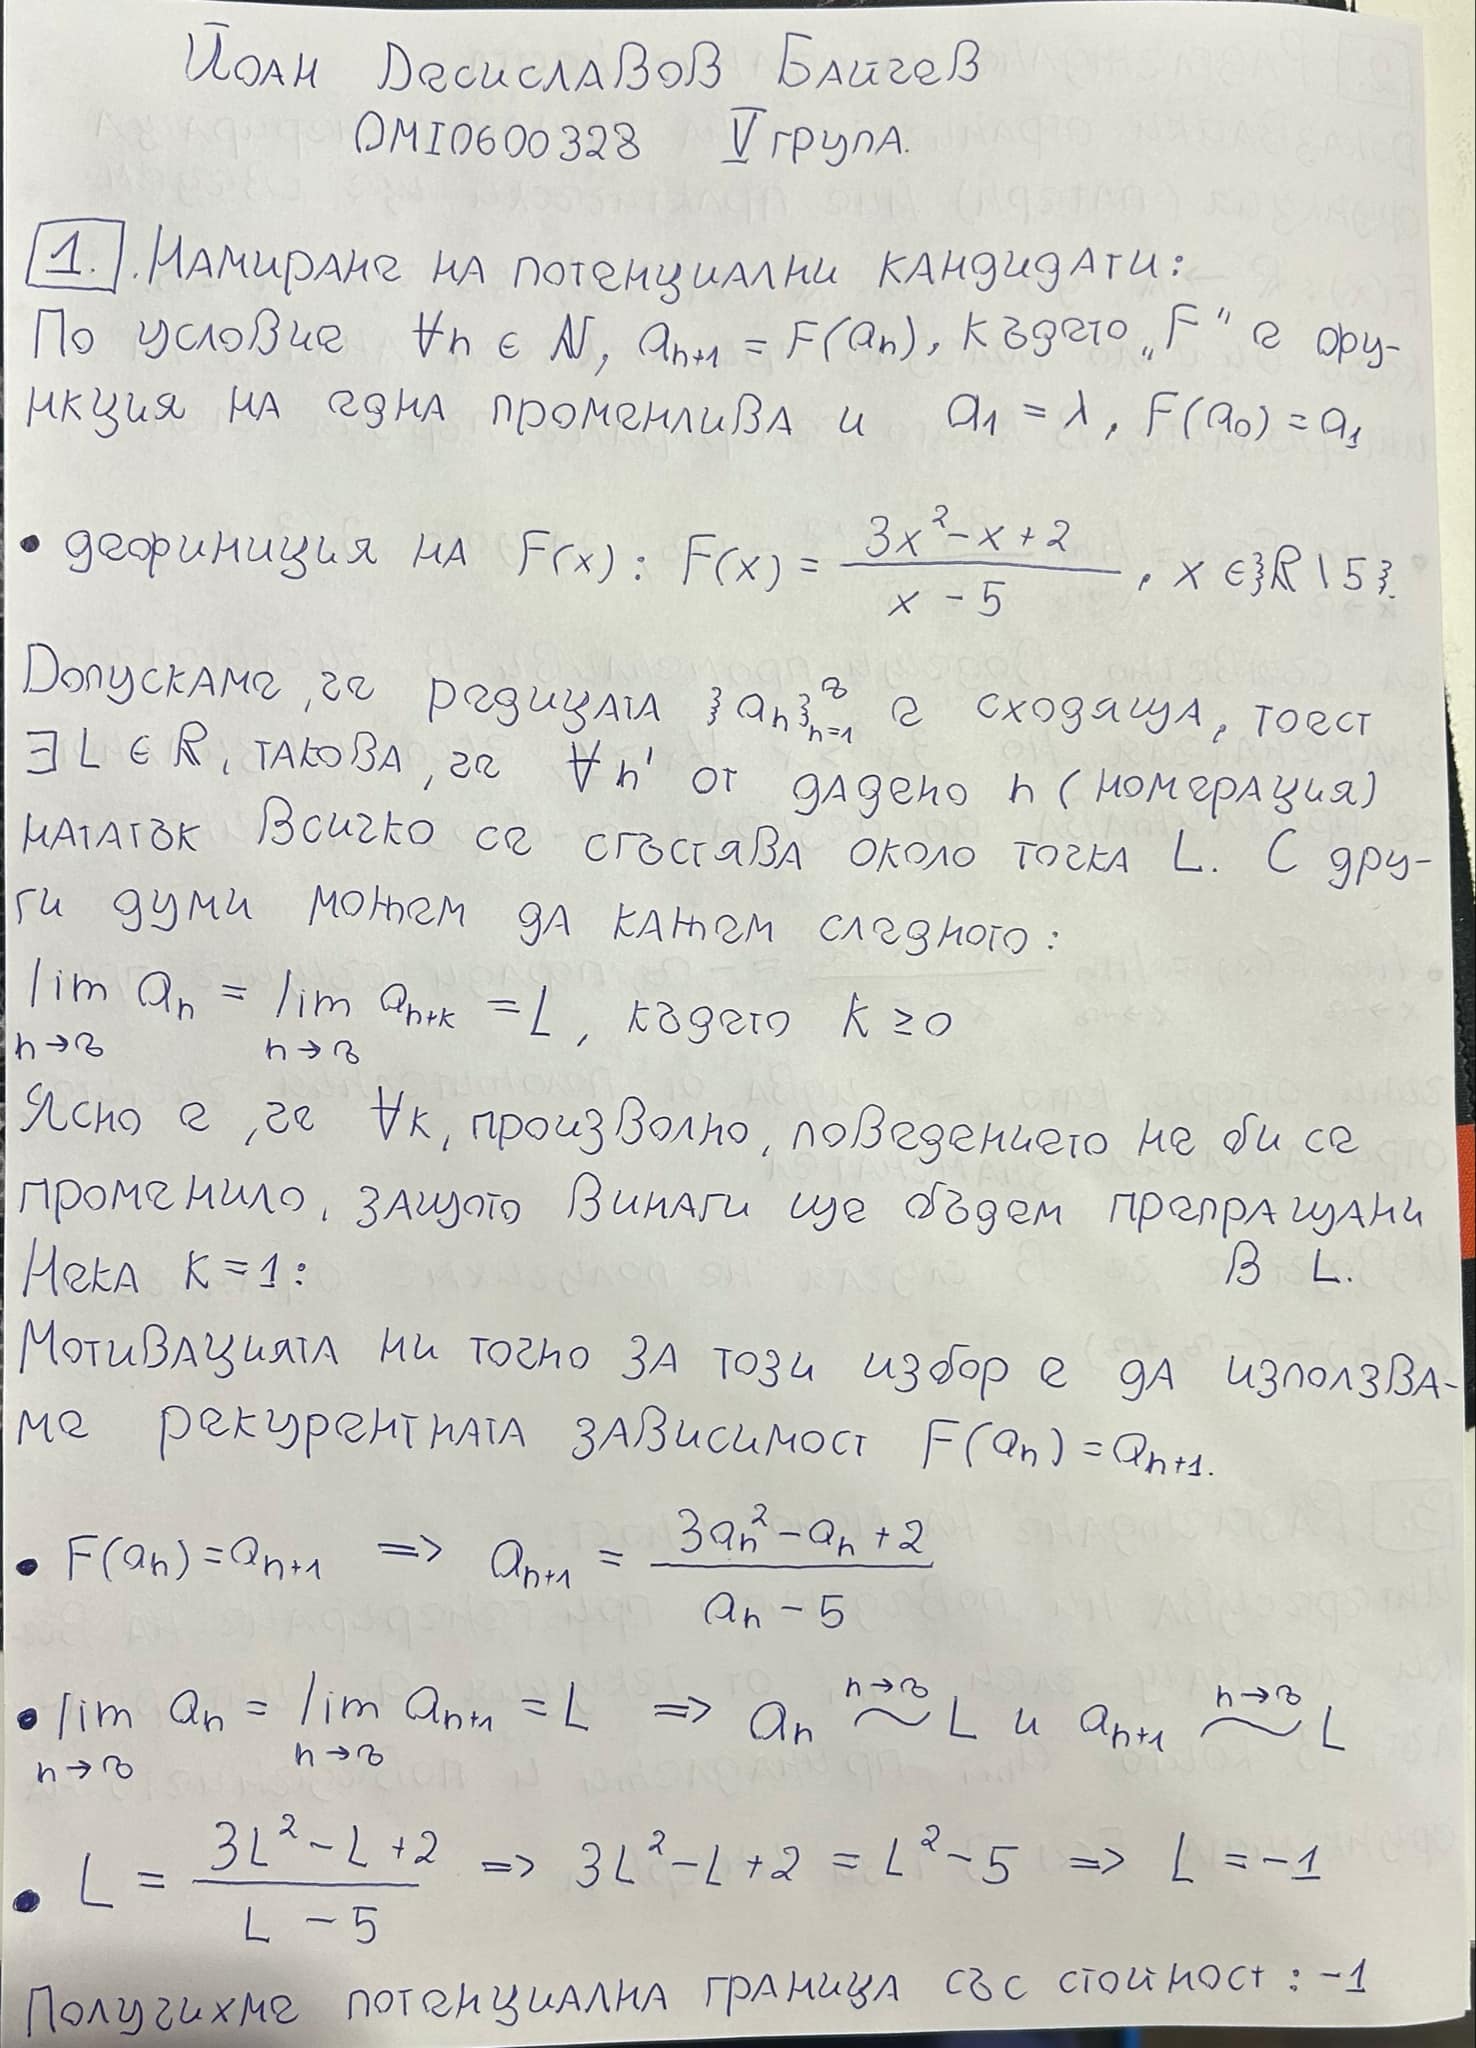 Йоан Десиславов Байчев
0MI0600328 V група.
1. Намиране на потенциални кандидати:
По условие ∀n ∈ ℕ, aₙ₊₁ = F(aₙ), където „F" е фу-
нкция на една променлива и a₁ = λ, F(a₀) = a₁
• дефиниция на F(x): F(x) = (3x² - x + 2)/(x - 5), x ∈ {ℝ \ 5}.
Допускаме, че редицата {aₙ}ₙ₌₁^∞ е сходяща, тоест
∃ L ∈ ℝ, такова, че ∀n' от дадено n (номерация)
нататък всичко се сгъстява около точка L. С дру-
ги думи можем да кажем следното:
lim_{n→∞} aₙ = lim_{n→∞} aₙ₊ₖ = L, където k ≥ 0
Ясно е, че ∀k, произволно, поведението не би се
променило, защото винаги ще бъдем препращани
Нека k = 1: в L.
Мотивацията ни точно за този избор е да използва-
ме рекурентната зависимост F(aₙ) = aₙ₊₁.
• F(aₙ) = aₙ₊₁ => aₙ₊₁ = (3aₙ² - aₙ + 2)/(aₙ - 5)
• lim_{n→∞} aₙ = lim_{n→∞} aₙ₊₁ = L => aₙ ~^{n→∞} L и aₙ₊₁ ~^{n→∞} L
• L = (3L² - L + 2)/(L - 5) => 3L² - L + 2 = L² - 5 => L = -1
Получихме потенциална граница със стойност: -1